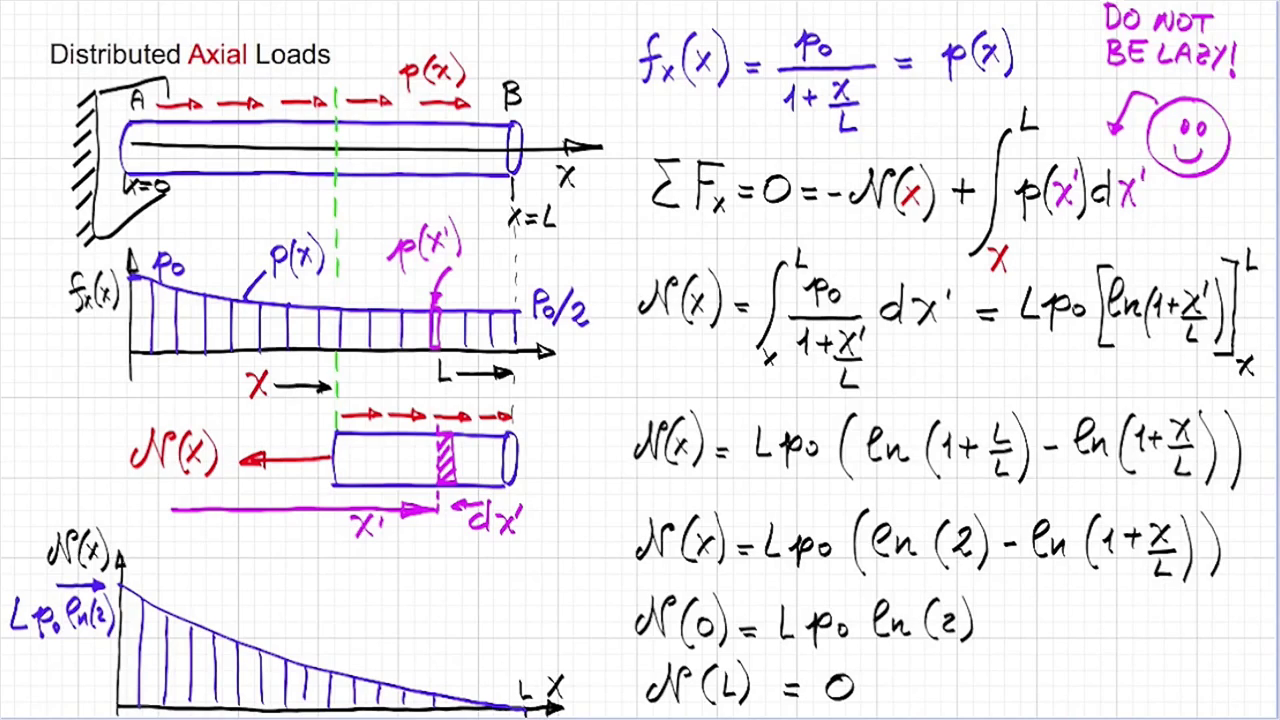 Distributed Axial Loads
p(x)
A
B
x=0
x
x=L
fx(x)
p0
p(x)
p(x')
p0/2
x
L
N(x)
x'
dx'
N(x)
L p0 ln(2)
L
x
fx(x) = p0 / (1 + x/L) = p(x)
DO NOT
BE LAZY!
∑Fx = 0 = -N(x) + ∫_x^L p(x')dx'
N(x) = ∫_x^L p0 / (1 + x'/L) dx' = L p0 [ln(1 + x'/L)]_x^L
N(x) = L p0 (ln (1 + L/L) - ln (1 + x/L))
N(x) = L p0 (ln (2) - ln (1 + x/L))
N(0) = L p0 ln (2)
N(L) = 0